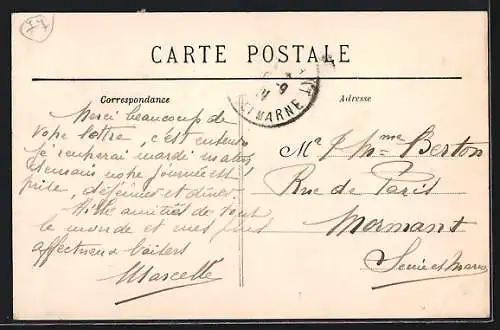 CARTE POSTALE
Correspondance
Adresse
ET MARNE
Merci beaucoup de
votre lettre, c'est entendu
je mardi matin
notre journée est
prise, déjeuner et dîner
Mille amitiés de tout
le monde et mes plus
affectueux baisers
Marcelle
Mr & Mme Berton
Rue de Paris
Mormant
Seine et Marne